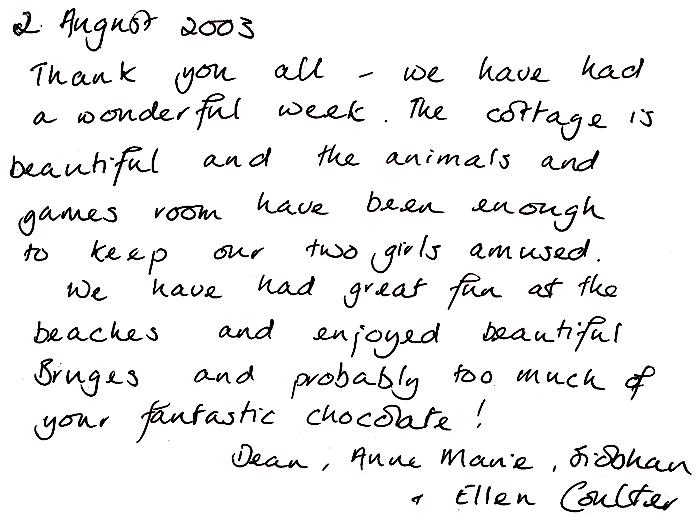 2 August 2003
Thank you all - we have had
a wonderful week. The cottage is
beautiful and the animals and
games room have been enough
to keep our two girls amused.
We have had great fun at the
beaches and enjoyed beautiful
Bruges and probably too much of
your fantastic chocolate!
Dean, Anne Marie, Siobhan
+ Ellen Coulter